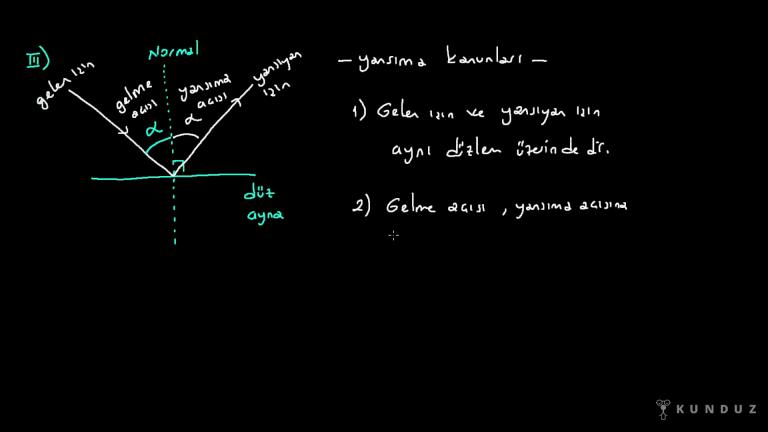 III)
Normal
gelen ışın
gelme
açısı
yansıma
açısı
yansıyan
ışın
α
α
düz
ayna
- yansıma kanunları -
1) Gelen ışın ve yansıyan ışın
aynı düzlem üzerinde dir.
2) Gelme açısı, yansıma açısına
KUNDUZ